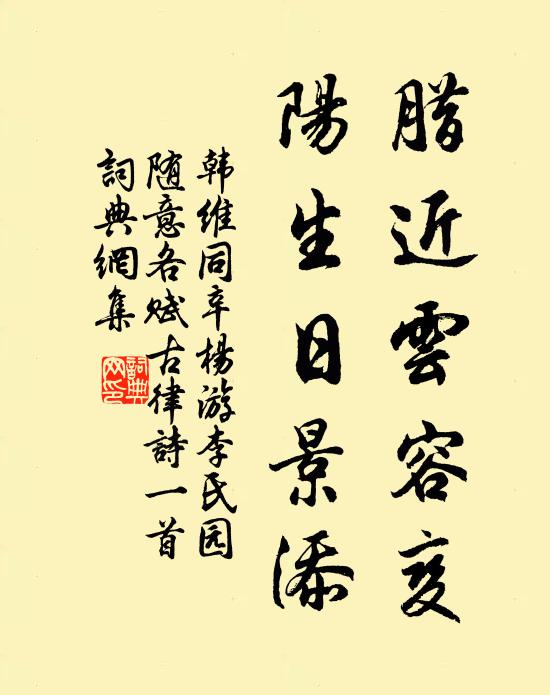 腊近雲容变
陽生日景添
韩维同辛杨游李氏园
随意各赋古律詩一首
詞典網集
詞典
网印